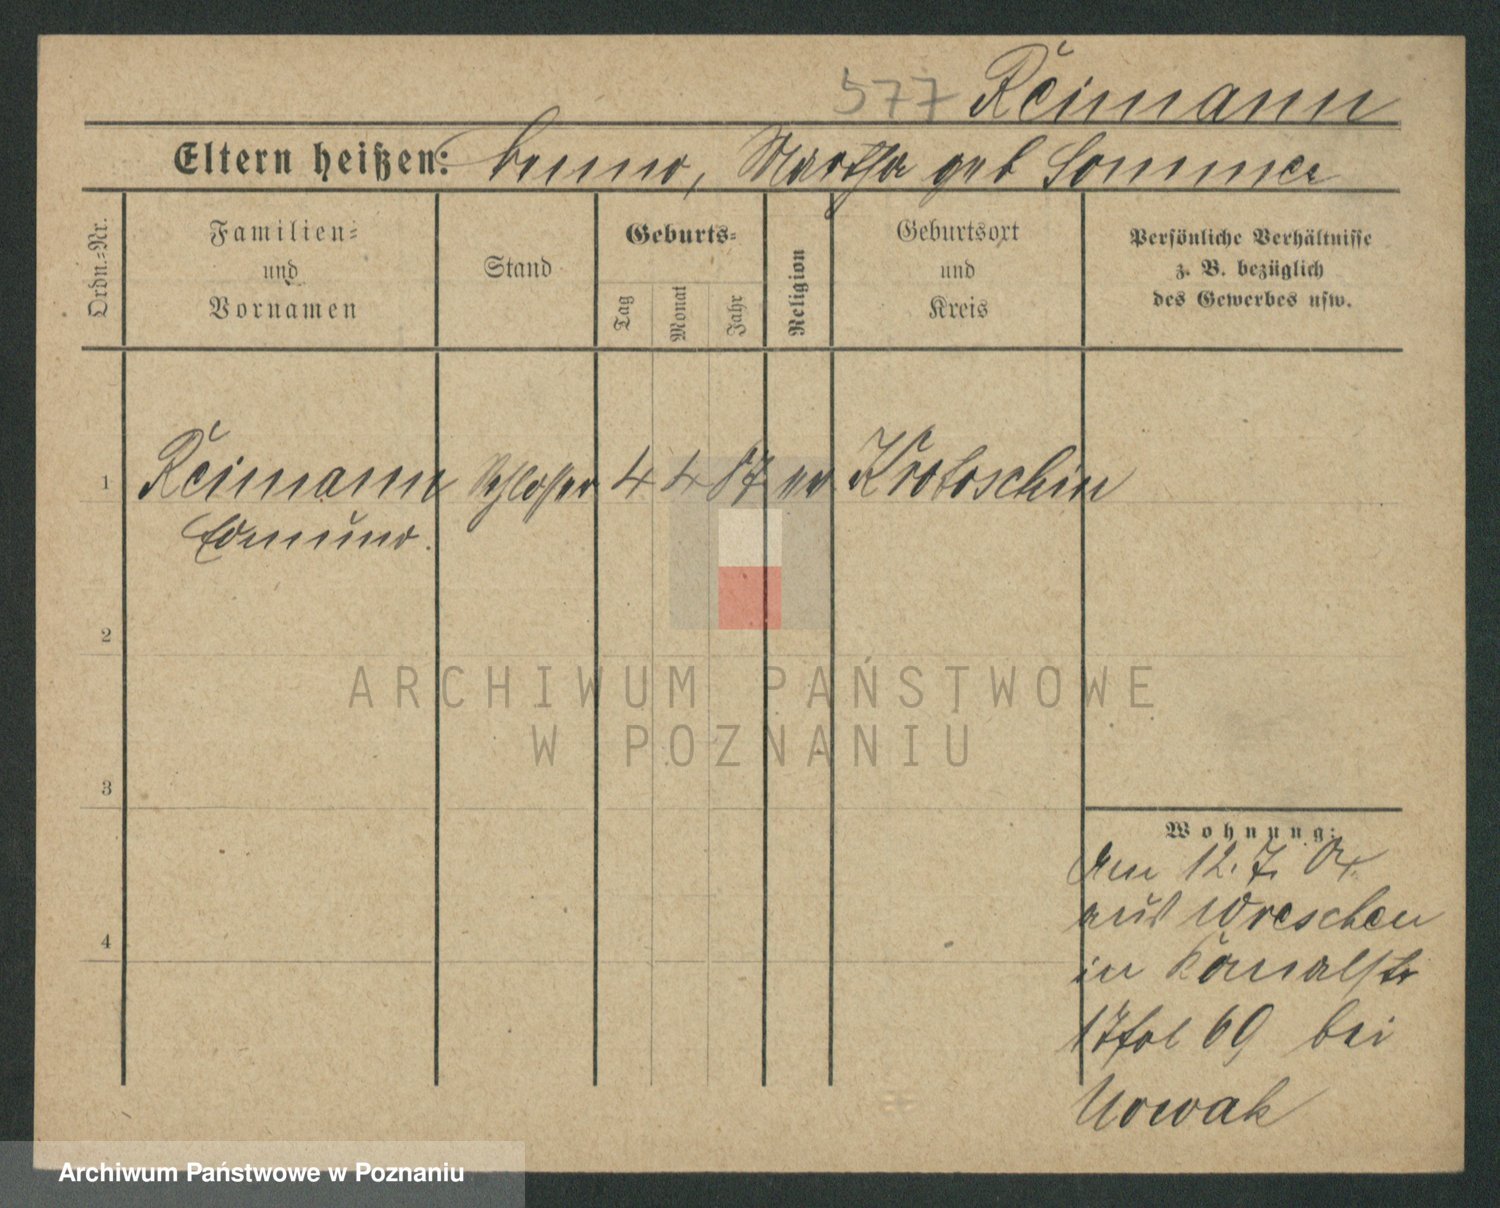 577 Reimann
Eltern heißen: Bruno, Martha geb Sommer
Ordn.-Nr.
Familien-
und
Vornamen
Stand
Geburts-
Tag
Monat
Jahr
Religion
Geburtsort
und
Kreis
Persönliche Verhältnisse
z. B. bezüglich
des Gewerbes usw.
1 Reimann Schlosser 4 4 87 ev Krotoschin
Edmund.
2
ARCHIWUM PAŃSTWOWE
W POZNANIU
3
Wohnung:
Am 12. 7.
aus Wreschen
in Kanalstr
17 fol 69 bei
Nowak
4
Archiwum Państwowe w Poznaniu